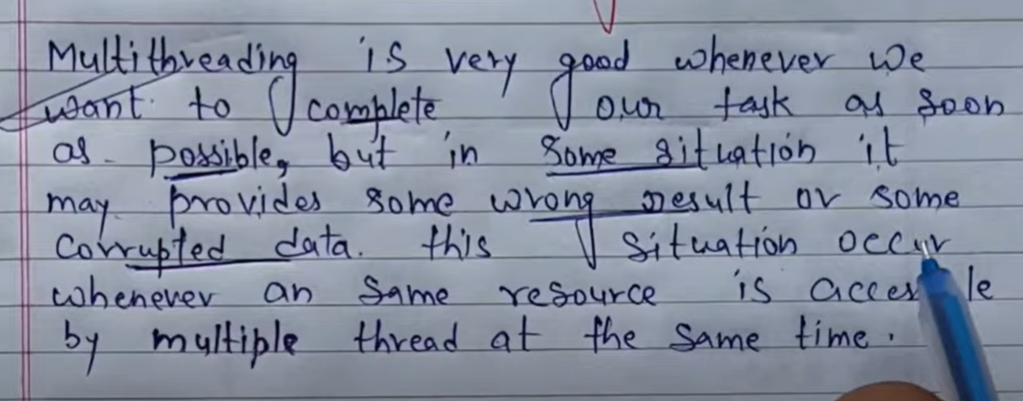 Multithreading is very good whenever we
want to complete our task as soon
as possible, but in some situation it
may provides some wrong result or some
corrupted data. this situation occur
whenever an same resource is
by multiple thread at the same time.